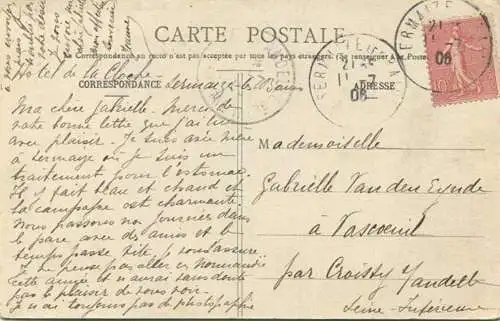 CARTE POSTALE
La Correspondance au recto n'est pas acceptée par tous les pays étrangers. (Se renseigner à la Poste)
CORRESPONDANCE
ADRESSE
Hotel de la Cloche - Sermaize les Bains
Ma chère Gabrielle. Merci de
votre bonne lettre que j'ai lue
avec plaisir. Je suis avec mère
à Sermaize où je suis un
traitement pour l'estomac.
Il fait beau et chaud et
la campagne est charmante.
Nous passons nos journées dans
le parc avec des amis et le
temps passe vite, je vous assure
Je ne pense pas aller en Normandie
cette année et n'aurai sans doute
pas le plaisir de vous voir.
Je n'ai toujours pas de photographie
à vous envoyer
Mademoiselle
Gabrielle Vanden Eynde
à Vascoeuil
par Croissy Vandelle
Seine-Inférieure
SERMAIZE
21
7
06
SERMAIZE
11 7
06